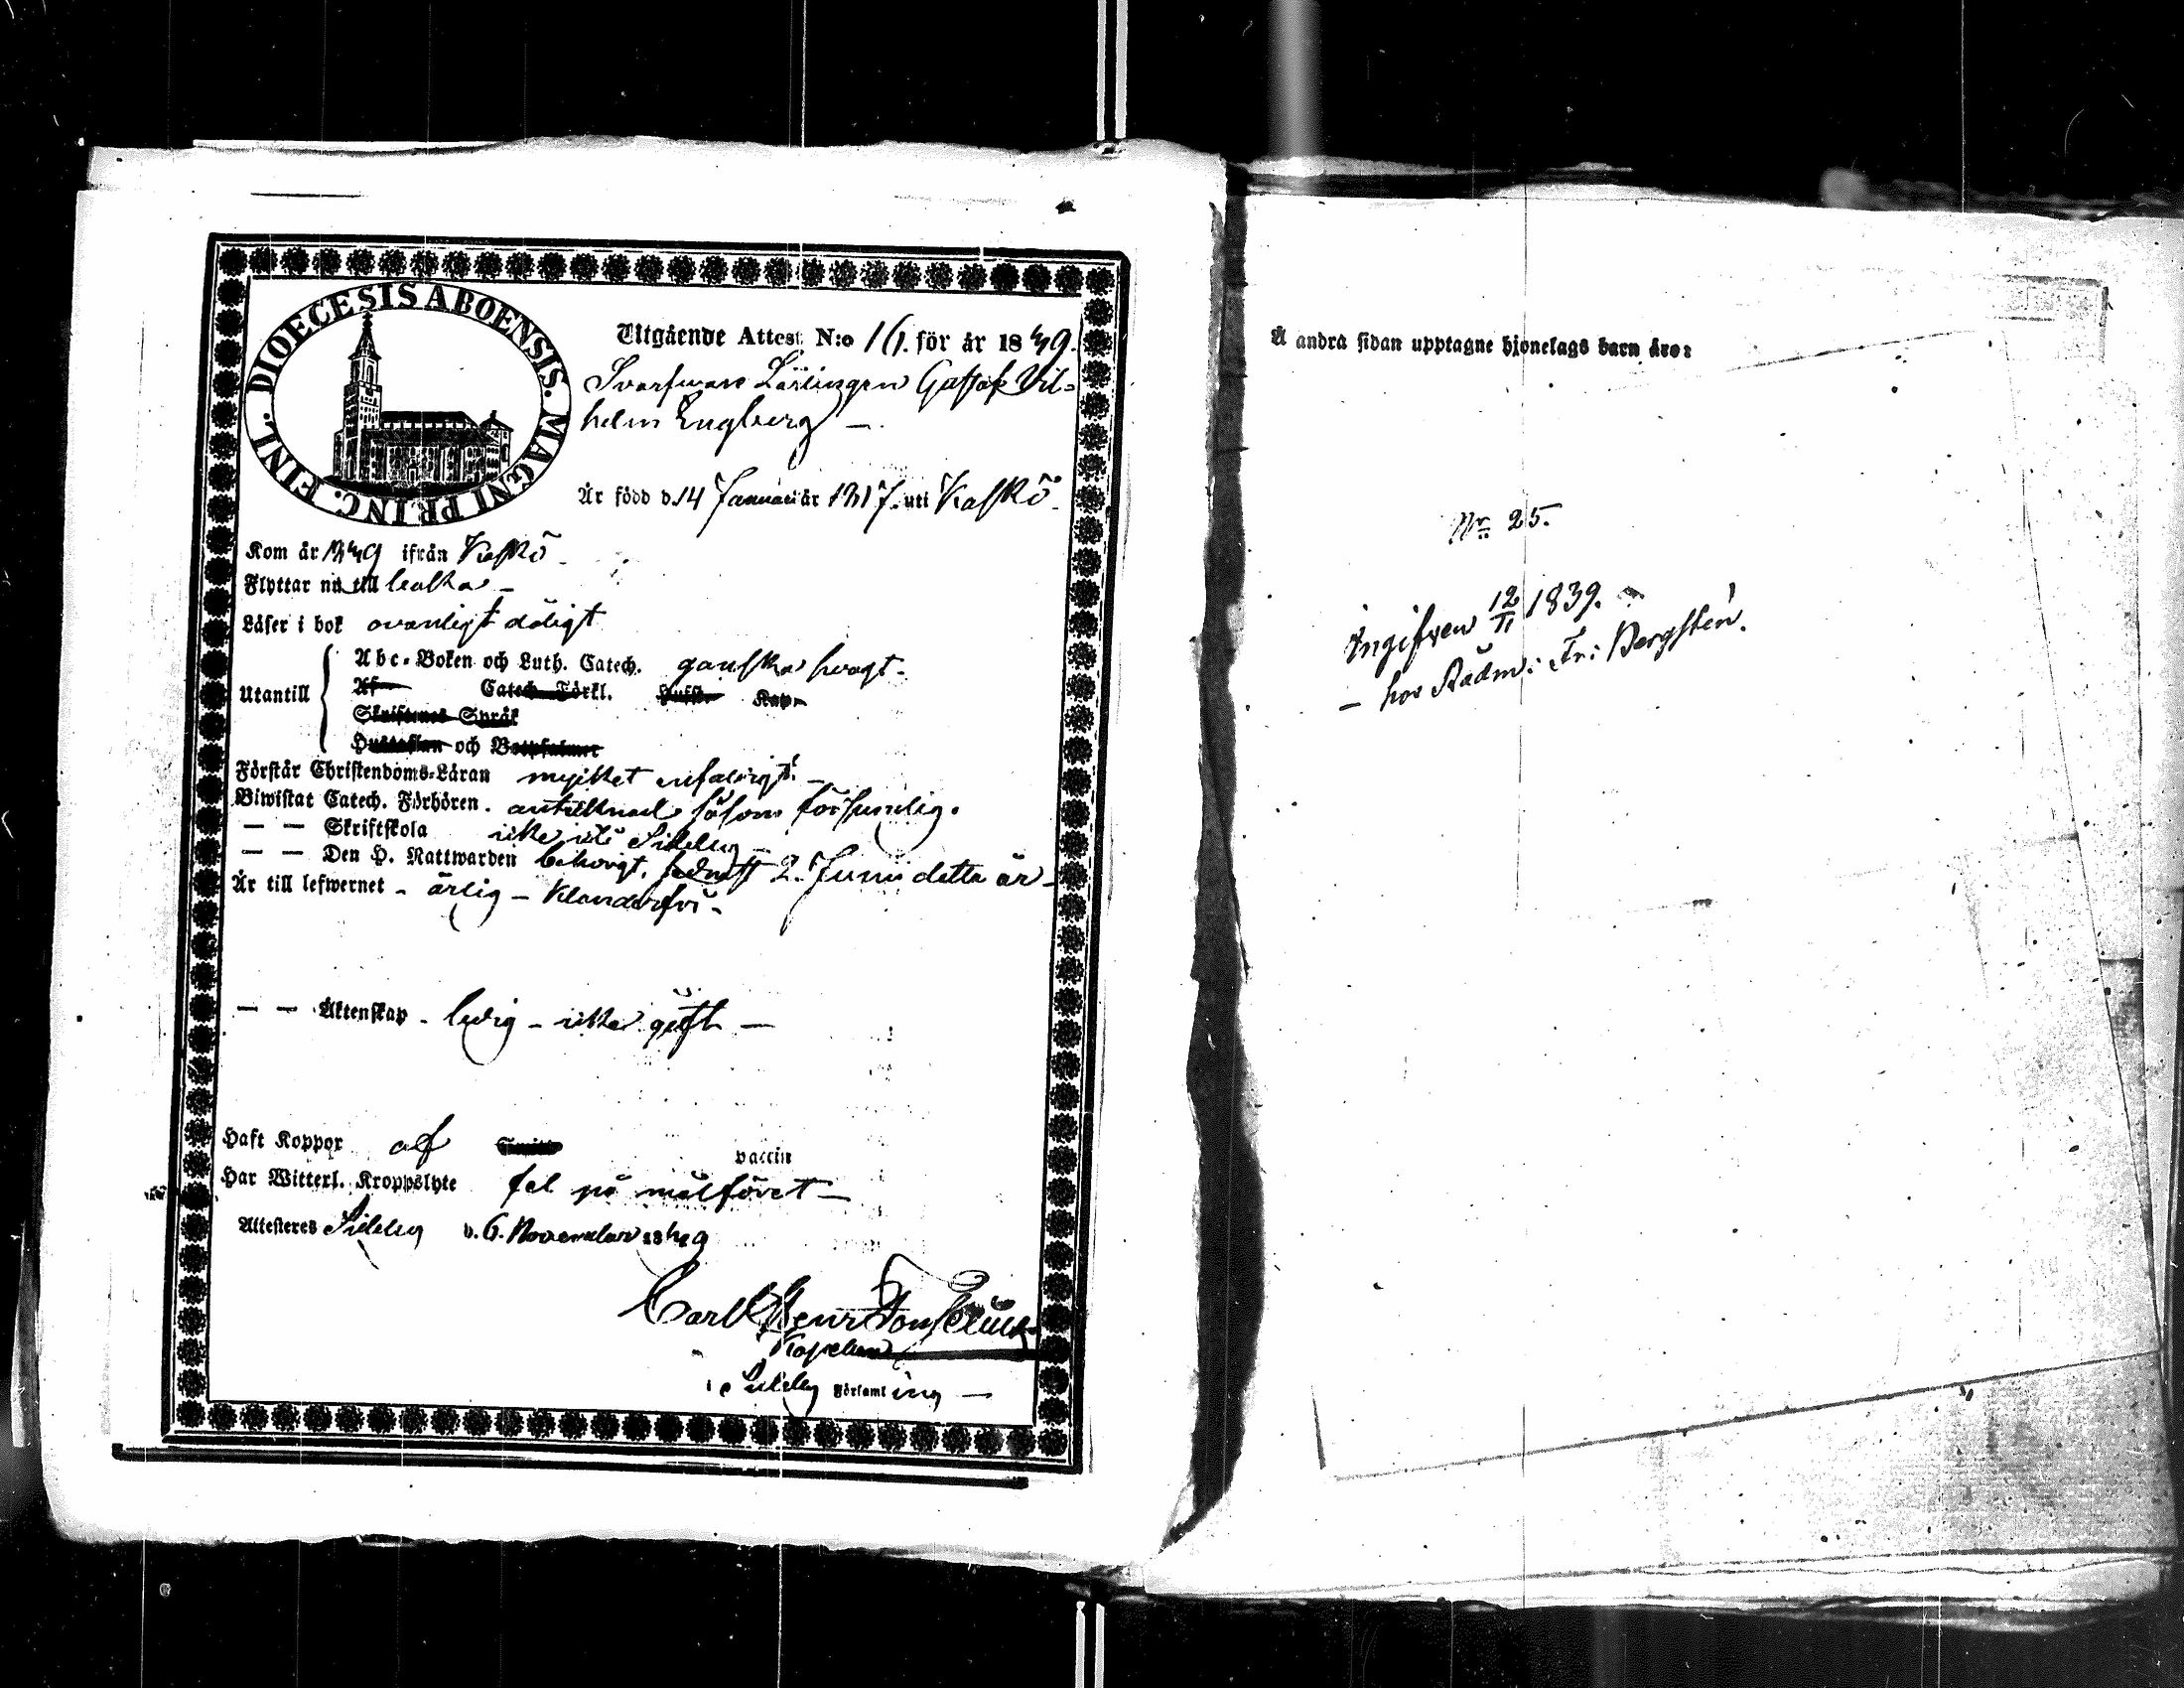 DIOECESIS ABOENSIS. MAGNI PRINC. FINL.
Utgående Attest N:o 16. för år 1839.
Svarfware Lärlingen Gustaf Vil=
helm Engberg —
Är född d. 14 Januari år 1817. uti Kaskö.
Kom år 1839 ifrån Kaskö
Flyttar nu till
Läser i bok ovanligt dåligt
Utantill
Abc-Boken och Luth. Catech. ganska svagt.
Af Catech. Förkl. Kap.
Skriftenes Språk
Hustaflan och Botpsalmer
Förstår Christendoms-Läran mycket enfaldigt. —
Biwistat Catech. Förhören. antecknad såsom försumlig.
— — Skriftskola icke uti Sideby —
— — Den H. Nattwarden behörigt, sednast 2. Junii detta år —
Är till lefwernet - ärlig - klanderfri -
— — Äktenskap - ledig - icke gift —
Haft Koppor af vaccin
Har Witterl. Kroppslyte fel på målföret —
Attesteres Sideby d. 6. November 1839
Carl Henr
Kapellan
i Sideby Församling —
Å andra sidan upptagne hjonelags barn äro:
Nr: 25.
Ingifven 12/11 1839.
— hos Rådm: Fr: Bergsten.